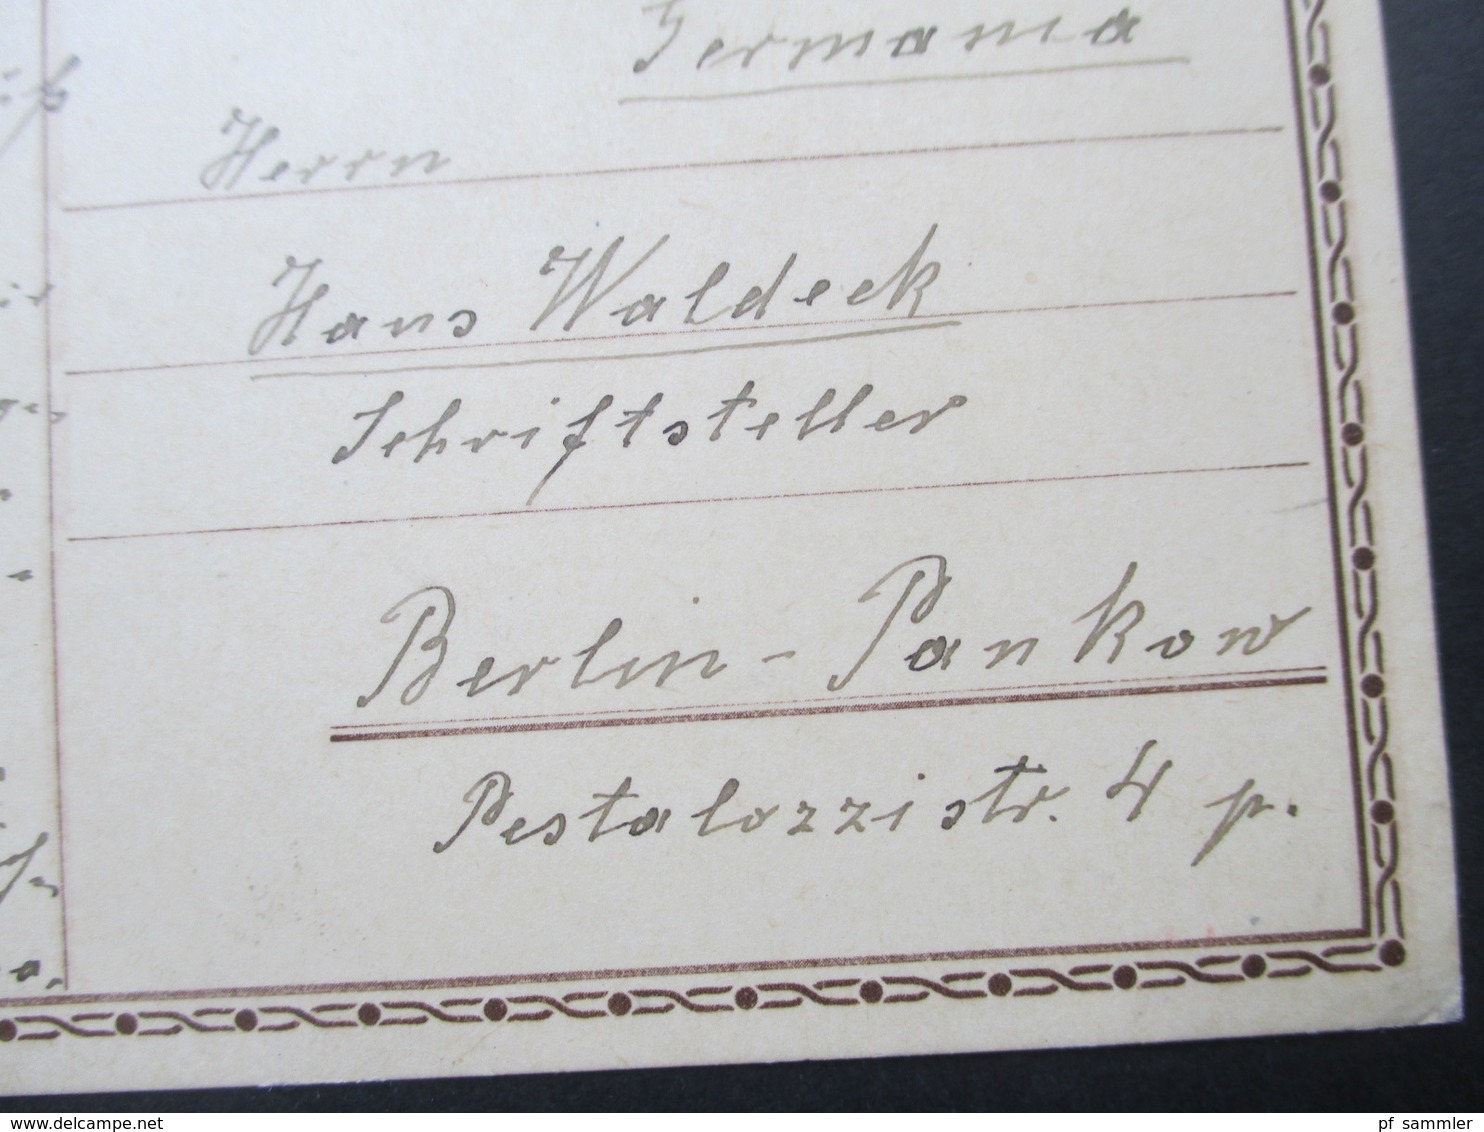 Germania
Herrn
Hans Waldeck
Schriftsteller
Berlin - Pankow
Pestalozzistr. 4 p.
© www.delcampe.net
pf_sammler